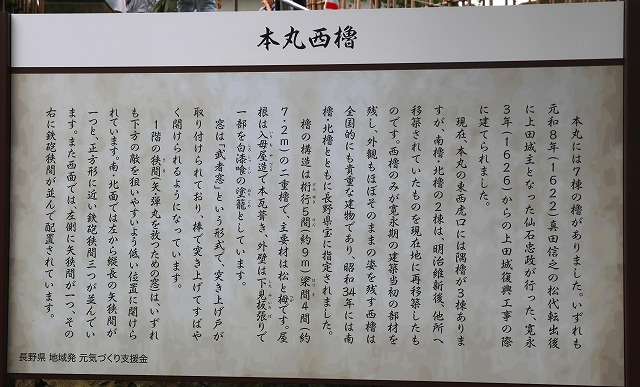 本丸西櫓
本丸には7棟の櫓がありました。いずれも
元和8年(1622)真田信之の松代転出後
に上田城主となった仙石忠政が行った、寛永
3年(1626)からの上田城復興工事の際
に建てられました。
現在、本丸の東西虎口には隅櫓が3棟ありま
すが、南櫓・北櫓の2棟は、明治維新後、他所へ
移築されていたものを現在地に再移築したも
のです。西櫓のみが寛永期の建築当初の部材を
残し、外観もほぼそのままの姿を残す西櫓は
全国的にも貴重な建物であり、昭和34年には南
櫓・北櫓とともに長野県宝に指定されました。
櫓の構造は桁行5間(約9m)梁間4間(約
7・2m)の二重櫓で、主要材は松と栂です。屋
根は入母屋造で本瓦葺き、外壁は下見板張りで
一部を白漆喰の塗籠としています。
窓は「武者窓」という形式で、突き上げ戸が
取り付けられており、棒で突き上げてすばや
く開けられるようになっています。
1階の狭間(矢弾丸を放つための窓)は、いずれ
も下方の敵を狙いやすいよう低い位置に開けら
れています。南・北面では左から縦長の矢狭間が
一つと、正方形に近い鉄砲狭間三つが並んでい
ます。また西面では、左側に矢狭間が一つ、その
右に鉄砲狭間が並んで配置されています。
長野県 地域発 元気づくり支援金